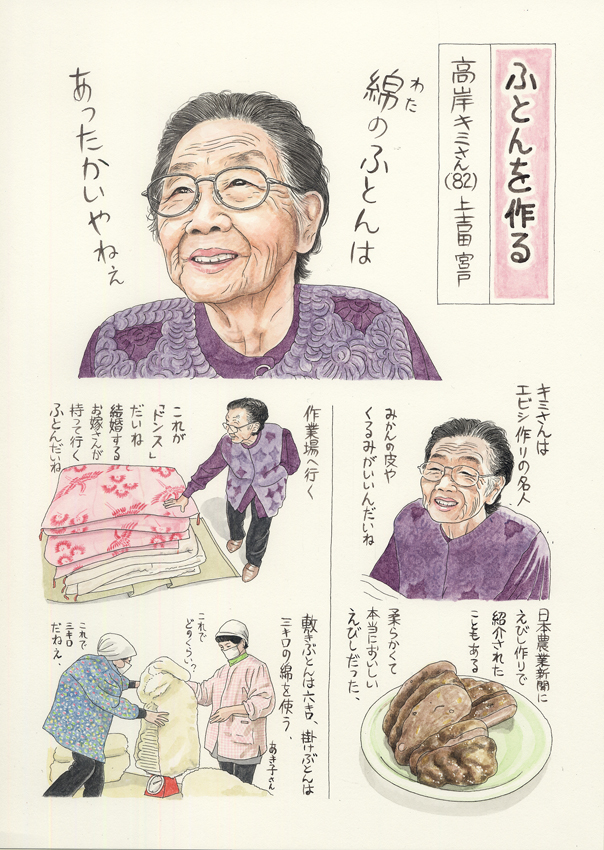 ふとんを作る
高岸キミさん(82) 上吉田 宮戸
わた
綿のふとんは
あったかいやねぇ
キミさんは
エビシ作りの名人
みかんの皮や
くるみがいいんだいね
日本農業新聞に
えびし作りで
紹介された
こともある
柔らかくて
本当においしい
えびしだった、
作業場へ行く
これが
「ドンス」
だいね
結婚する
お嫁さんが
持って行く
ふとんだいね
敷きぶとんは六キロ、掛けぶとんは
三キロの綿を使う、
あき子さん
これで
どのくらいっ?
これで
三キロ
だねえ、